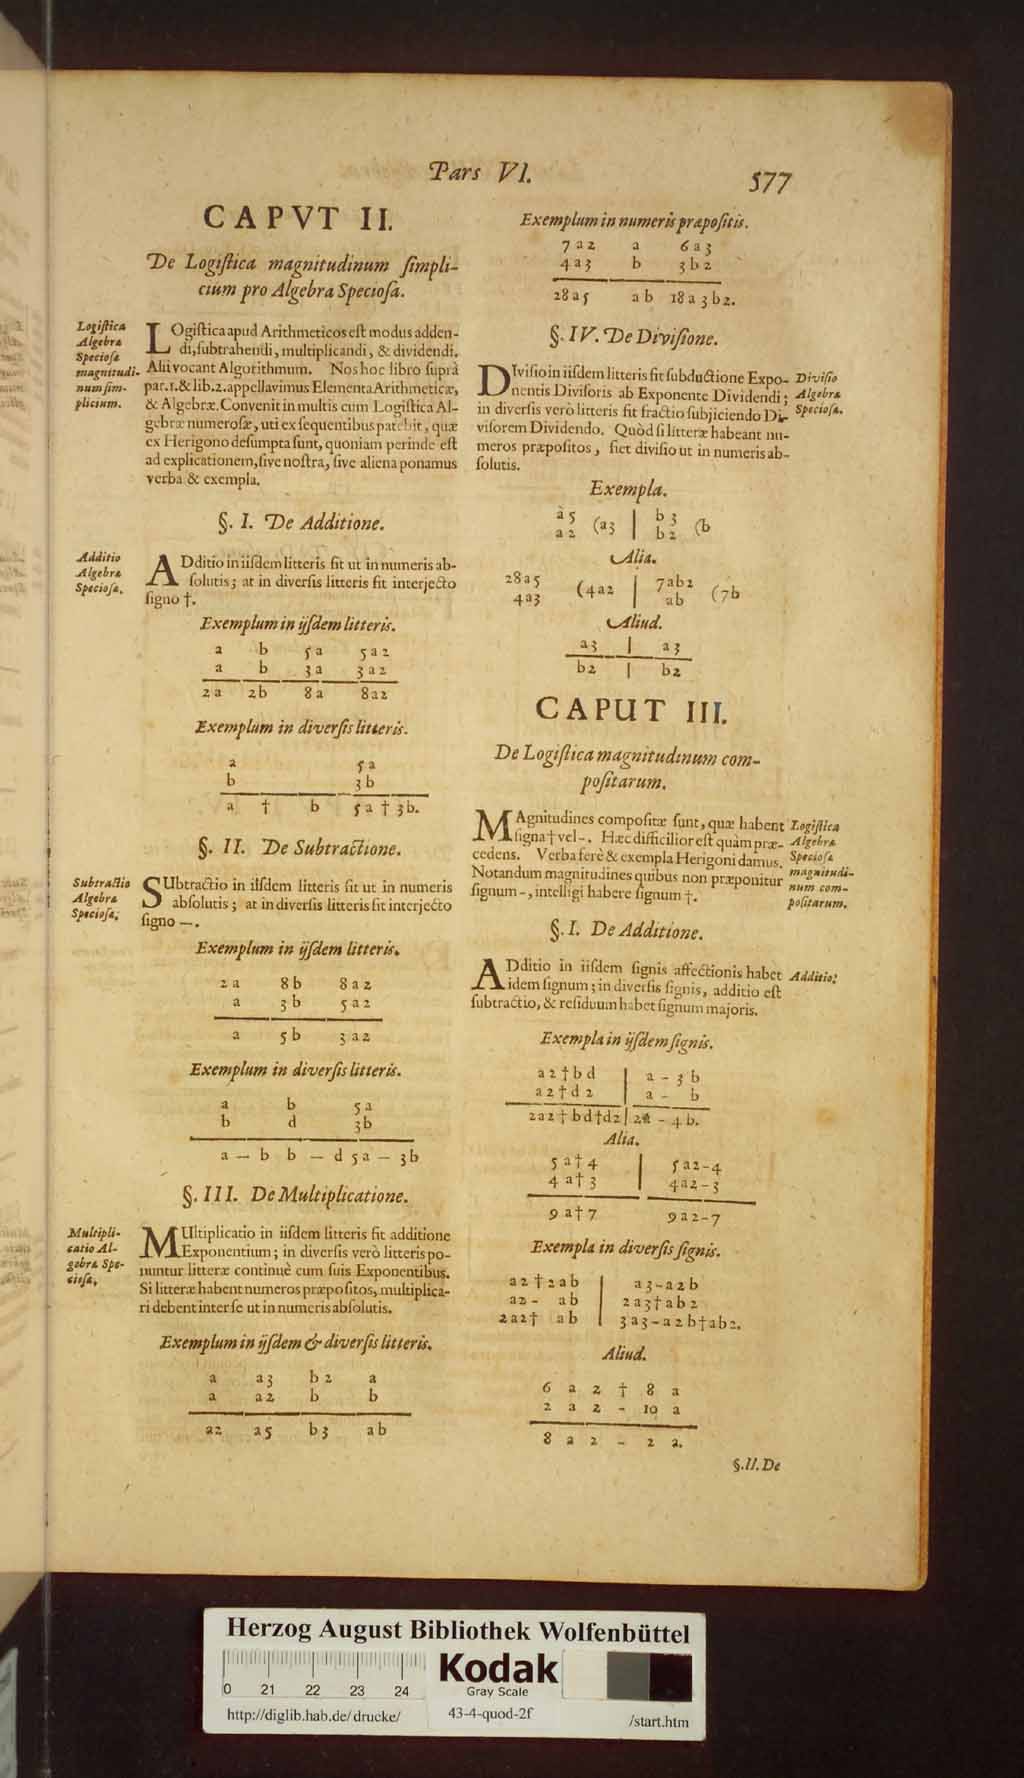 Pars VI.
577
CAPVT II.
De Logiſtica magnitudinum ſimpli-
cium pro Algebra Specioſa.
Logiſtica
Algebra
Specioſa
magnitudi-
num ſim-
plicium.
LOgiſtica apud Arithmeticos eſt modus adden-
di, ſubtrahendi, multiplicandi, & dividendi.
Alii vocant Algorithmum. Nos hoc libro ſuprà
par.1.& lib.2.appellavimus Elementa Arithmeticæ,
& Algebræ. Convenit in multis cum Logiſtica Al-
gebræ numeroſæ, uti ex ſequentibus patebit, quæ
ex Herigono deſumpta ſunt, quoniam perinde eſt
ad explicationem, ſive noſtra, ſive aliena ponamus
verba & exempla.
§. I. De Additione.
Additio
Algebra
Specioſa.
ADditio in iiſdem litteris fit ut in numeris ab-
ſolutis; at in diverſis litteris fit interjecto
ſigno †.
Exemplum in ijſdem litteris.
a b 5a 5a2
a b 3a 3a2
2a 2b 8a 8a2
Exemplum in diverſis litteris.
a 5a
b 3b
a † b 5a † 3b.
§. II. De Subtractione.
Subtractio
Algebra
Specioſa.
SUbtractio in iiſdem litteris fit ut in numeris
abſolutis; at in diverſis litteris fit interjecto
ſigno —.
Exemplum in ijſdem litteris.
2a 8b 8a2
a 3b 5a2
a 5b 3a2
Exemplum in diverſis litteris.
a b 5a
b d 3b
a — b b — d 5a — 3b
§. III. De Multiplicatione.
Multipli-
catio Al-
gebra Spe-
cioſa.
MUltiplicatio in iiſdem litteris fit additione
Exponentium; in diverſis verò litteris po-
nuntur litteræ continuè cum ſuis Exponentibus.
Si litteræ habent numeros præpoſitos, multiplica-
ri debent inter ſe ut in numeris abſolutis.
Exemplum in ijſdem & diverſis litteris.
a a3 b2 a
a a2 b b
a2 a5 b3 ab
Exemplum in numeris præpoſitis.
7a2 a 6a3
4a3 b 3b2
28a5 ab 18a3b2.
§. IV. De Diviſione.
DIviſio in iiſdem litteris fit ſubductione Expo-
nentis Diviſoris ab Exponente Dividendi;
in diverſis verò litteris fit fractio ſubjiciendo Di-
viſorem Dividendo. Quòd ſi litteræ habeant nu-
meros præpoſitos, fiet diviſio ut in numeris ab-
ſolutis.
Diviſio
Algebra
Specioſa.
Exempla.
a5 (a3 | b3 (b
a2 b2
Alia.
28a5 (4a2 | 7ab2 (7b
4a3 ab
Aliud.
a3 | a3
b2 | b2
CAPUT III.
De Logiſtica magnitudinum com-
poſitarum.
MAgnitudines compoſitæ ſunt, quæ habent
ſigna † vel -. Hæc difficilior eſt quàm præ-
cedens. Verba ferè & exempla Herigoni damus.
Notandum magnitudines quibus non præponitur
ſignum -, intelligi habere ſignum †.
Logiſtica
Algebra
Specioſa
magnitudi-
num com-
poſitarum.
§. I. De Additione.
ADditio in iiſdem ſignis affectionis habet
idem ſignum; in diverſis ſignis, additio eſt
ſubtractio, & reſiduum habet ſignum majoris.
Additio.
Exempla in ijſdem ſignis.
a2†bd | a - 3b
a2†d2 | a - b
2a2†bd†d2 | 2a - 4b.
Alia.
5a†4 | 5a2-4
4a†3 | 4a2-3
9a†7 9a2-7
Exempla in diverſis ſignis.
a2†2ab | a3-a2b
a2- ab | 2a3†ab2
2a2† ab | 3a3-a2b†ab2.
Aliud.
6 a 2 † 8 a
2 a 2 - 10 a
8 a 2 - 2 a.
§.II. De
Herzog August Bibliothek Wolfenbüttel
0 21 22 23 24
Kodak
Gray Scale
http://diglib.hab.de/drucke/
43-4-quod-2f
/start.htm